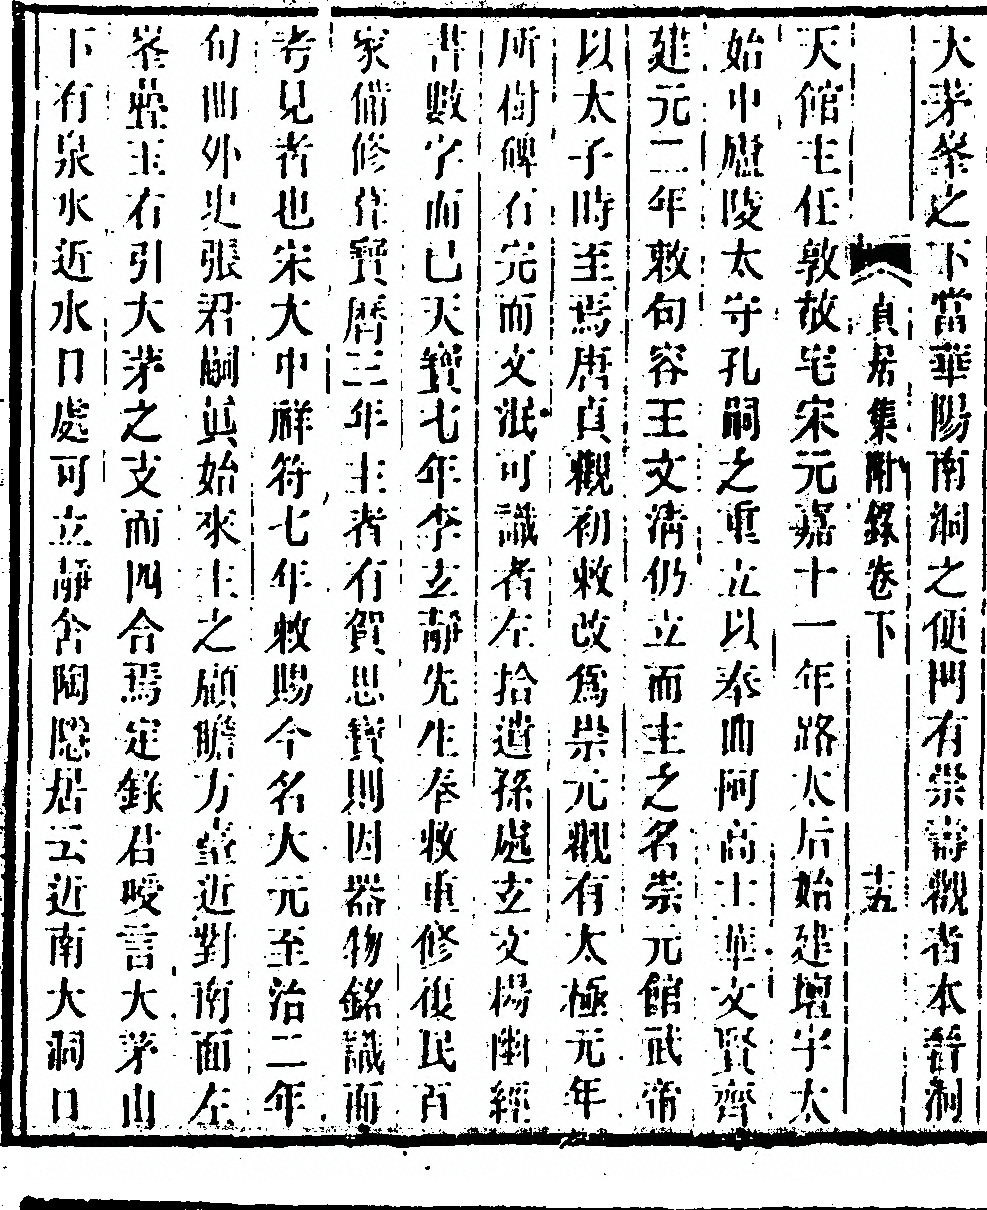 大茅峯之下當華陽南洞之便門有崇壽觀者本晉洞
貞居集附錄卷下 十五
天館主任敦故宅宋元嘉十一年路太后始建壇宇太
始中廬陵太守孔嗣之重立以奉曲阿高士華文賢齊
建元二年敕句容王文清仍立而主之名崇元館武帝
以太子時至焉唐貞觀初敕改爲崇元觀有太極元年
所樹碑石完而文泯可識者左拾遺孫處玄文楊幽經
書數字而已天寶七年李玄靜先生奉敕重修復民百
家備修葺寶曆三年主者有賀思寶則因器物銘識而
考見者也宋大中祥符七年敕賜今名大元至治二年
句曲外史張君嗣眞始來主之顧瞻方臺近對南面左
峯壘玉右引大茅之支而四合焉定錄君曖言大茅山
下有泉水近水口處可立靜舍陶隱居云近南大洞口